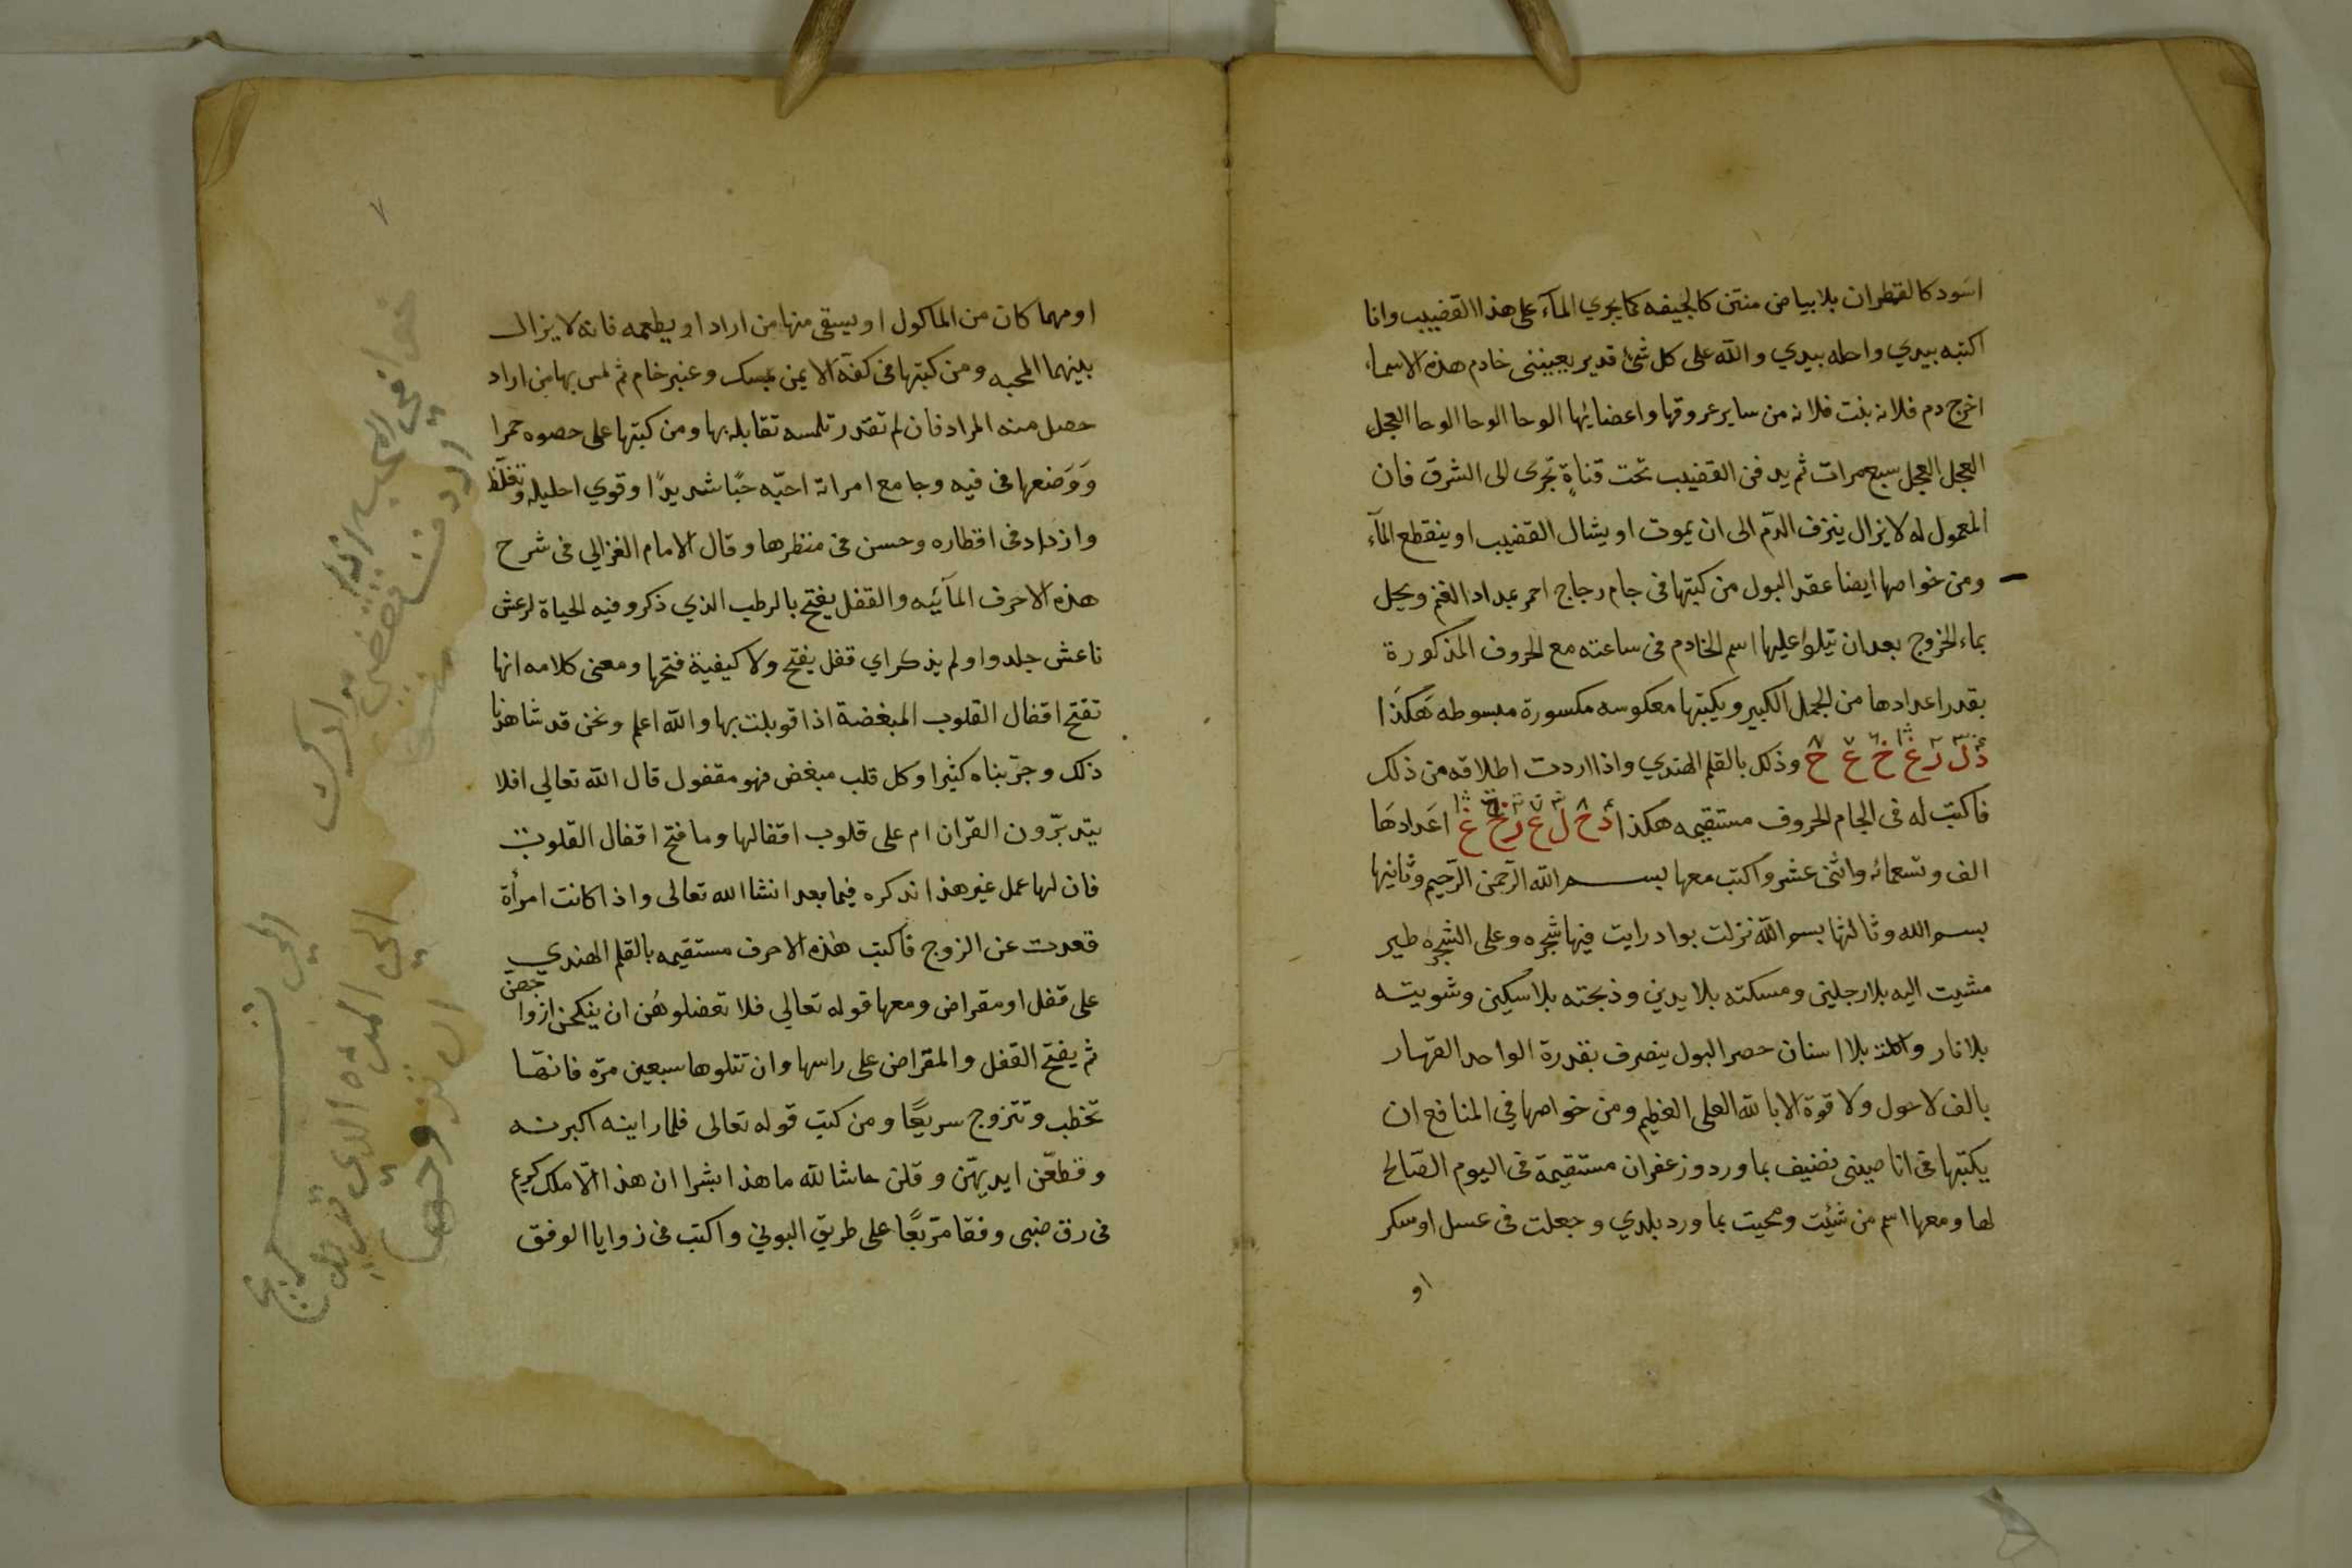 اسود كالقطران بلابياض منتن كالجيفه كما يجري المآء على هذا القضيب وانا
اكتبه بيدي واحله بيدي والله على كل شئ قدير يعيننى خادم هذه الاسماء
اخرج دم فلانه بنت فلانه من ساير عروقها واعضائها الوحا الوحا الوحا العجل
العجل العجل سبع مرات ثم يدفن القضيب تحت قناةٍ تجرى الى الشرق فان
المعمول له لا يزال ينزف الدم الى ان يموت او يشال القضيب او ينقطع المآء
ومن خواصها ايضا عقد البول من كتبها فى جام زجاج احمر بمداد الغنم ويحل
بماء الخروج بعد ان تيلوا عليها اسم الخادم فى ساعته مع الحروف المذكورة
بقدر اعدادها من الجمل الكبير ويكتبها معكوسه مكسورة مبسوطه هَكذَا
وذلك بالقلم الهندي واذا اردت اطلاقه من ذلك
فاكتب له فى الجام الحروف مستقيمه هكذا اعدادهَا
الف وتسعمائه واثنى عشر واكتب معها بسم الله الرّحمن الرّحيم وثانيها
بسم الله وثالثها بسم الله نزلت بواد رايت فيها شجره وعلى الشجره طير
مشيت اليه بلارجلين ومسكته بلا يدين وذبحته بلاسكين وشويته
بلانار واكلته بلا اسنان حصر البول ينصرف بقدرة الواحد القهار
بالف لاحول ولا قوة الابالله العلى العظيم ومن خواصها في المنافع ان
يكتبها فى انا صينى نضيف بما ورد وزعفران مستقيمة فى اليوم الصّالح
لها ومعها اسم من شئت ومحيت بما ورد بلدي وجعلت فى عسل او سكر
او
٧
اومهما كان من الماكول او يسقى منها من اراد او يطعمه فانه لا يزال
بينهما المحبه ومن كتبها فى كفّه الايمن بمسك وعنبر خام ثم لمس بها من اراد
حصل منه المراد فان لم تقدر تلمسه تقابله بها ومن كتبها على حصوه حمرا
وَوَضعها فى فيه وجامع امراته احبّه حبًا شديدًا وقوي احليله وتغلّظ
وازداد فى اقطاره وحسن فى منظرها وقال الامام الغزالي فى شرح
هذه الاحرف المآئيه والقفل يفتح بالرطب الذي ذكرو فيه الحياة لرعش
ناعش جلدوا ولم يذكر اي قفل يفتح ولا كيفية فتحها ومعنى كلامه انها
تفتح اقفال القلوب المبغضة اذا قوبلت بها والله اعلم ونحن قد شاهدنا
ذلك وجرّبناه كثيرا وكل قلب مبغض فهو مقفول قال الله تعالي افلا
يتدبّرون القران ام على قلوب اقفالها وما فتح اقفال القلوب
فان لها عمل غير هذا نذكره فيما بعد انشا الله تعالى واذا كانت امرأة
قعدت عن الزوج فاكتب هٰذه الاحرف مستقيمه بالقلم الهندي
على قفل او مقراض ومعها قوله تعالي فلا تعضلوهُن ان ينكحن ازواجهنّ
ثم يفتح القفل والمقراض على راسها وان تتلوها سبعين مرّة فانهّا
تخطب وتتزوج سريعًا ومن كتب قوله تعالى فلما راينه اكبرنه
وقطعّن ايديهّن وقلن حاشا لله ما هذا بشرا ان هذا الّا ملك كريم
فى رق ضبى وفقا مرّبعًا على طريق البوني واكتب فى زوايا الوفق